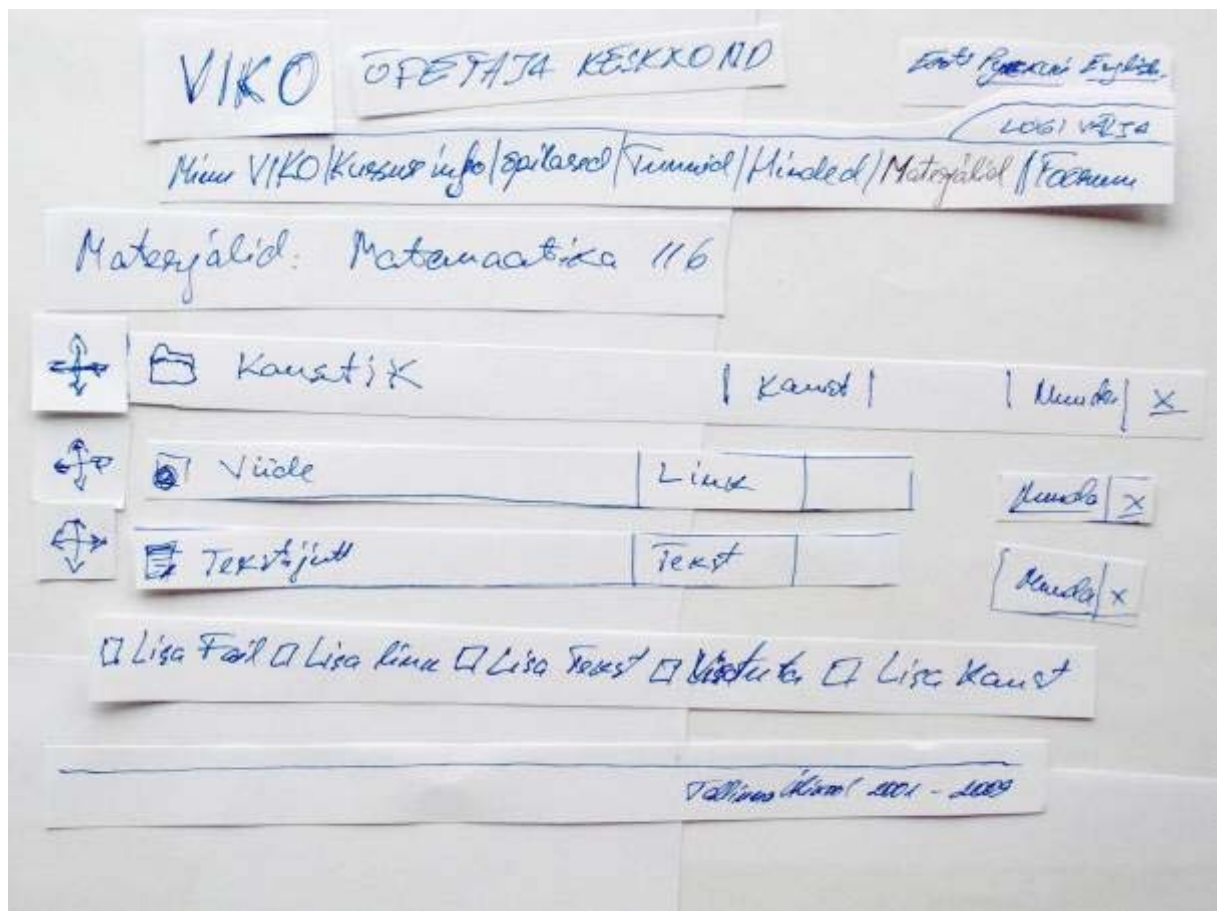 VIKO ÕPETAJA KESKKOND Eesti Русский English
LOGI VÄLJA
Minu VIKO | Kursuse info | Õpilased | Tunnid | Hinded | Materjalid | Foorum
Materjalid: Matemaatika 11b
Kaustik | Kaust | | Muuda | X
Viide | Link | Muuda | X
Tekstijutt | Tekst | Muuda | X
Lisa Fail Lisa link Lisa Tekst Lisa Kaust
Tallinna Ülikool 2001 - 2009